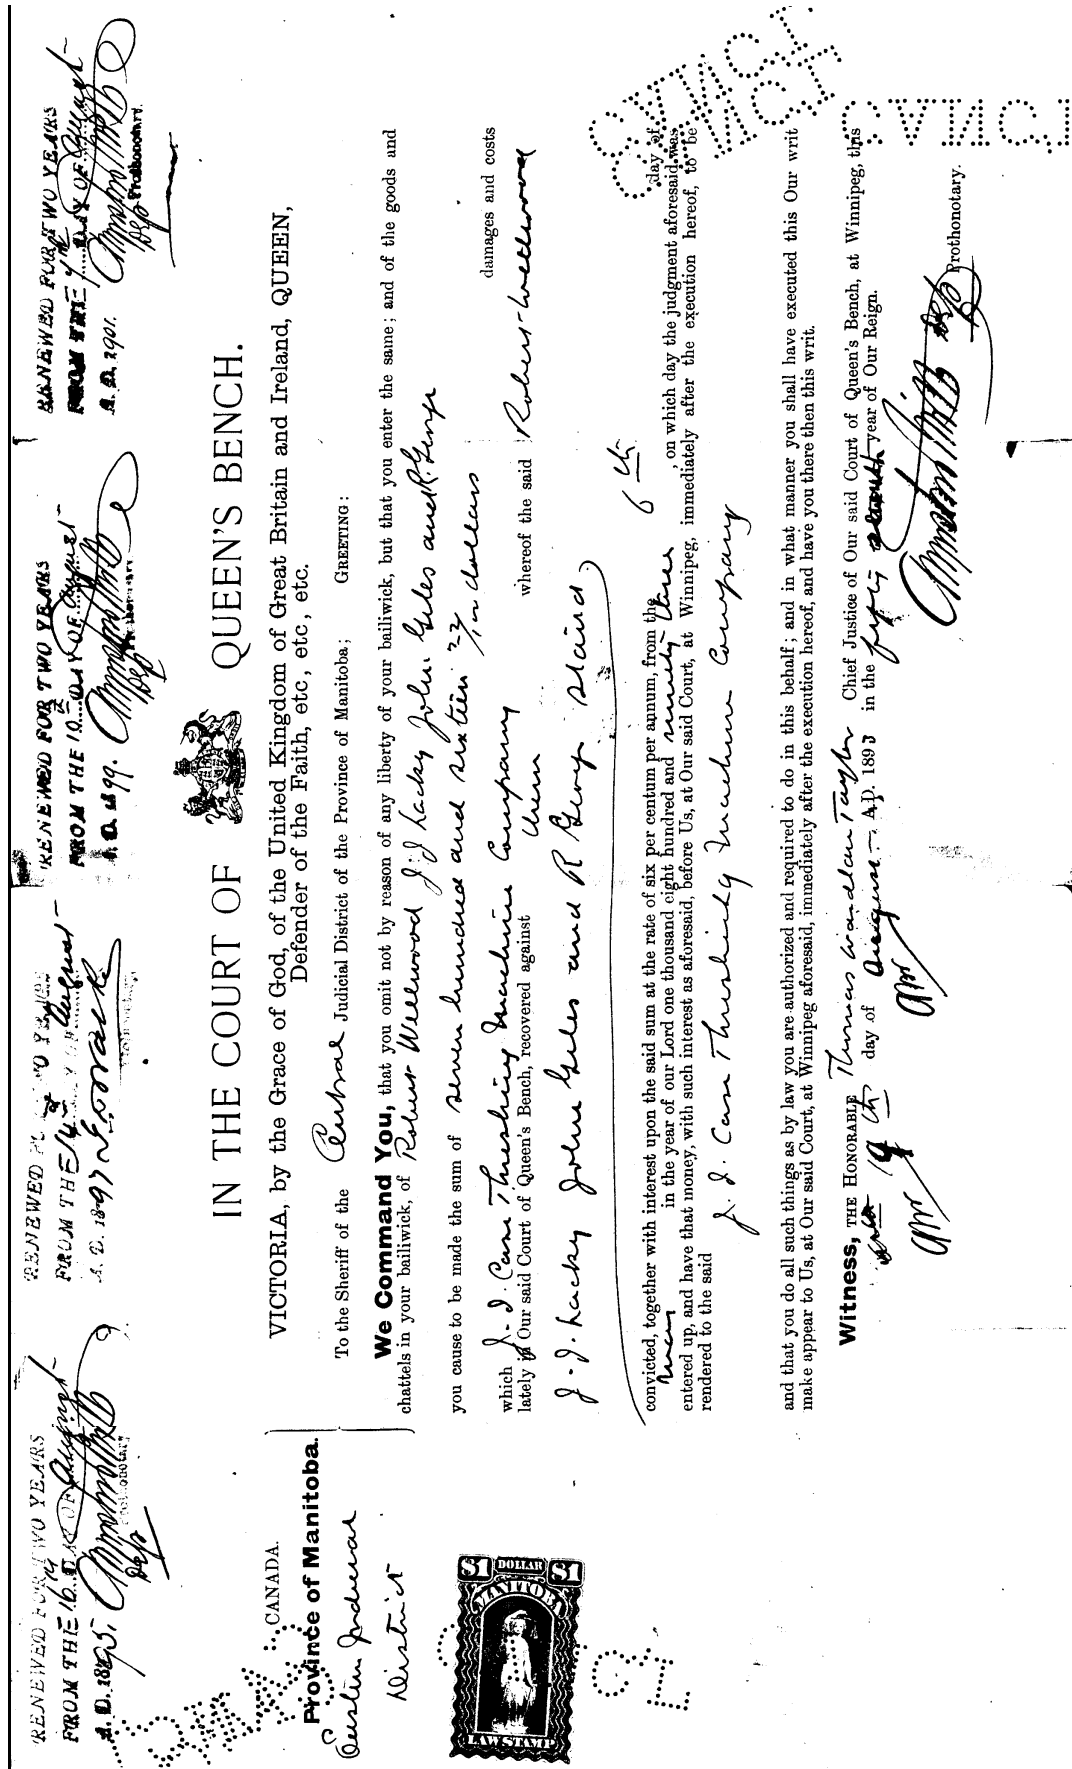 RENEWED FOR TWO YEARS
FROM THE 16th DAY OF August
A. D. 1895,
Dep Prothonotary
RENEWED FOR TWO YEARS
FROM THE 14th DAY OF August
A. D. 1897
RENEWED FOR TWO YEARS
FROM THE 10th DAY OF August
A. D. 1899.
Dep Prothonotary.
RENEWED FOR TWO YEARS
FROM THE 7th DAY OF August
A. D. 1901.
Dep Prothonotary.
IN THE COURT OF QUEEN'S BENCH.
CANADA.
Province of Manitoba.
Eastern Judicial
District
VICTORIA, by the Grace of God, of the United Kingdom of Great Britain and Ireland, QUEEN,
Defender of the Faith, etc, etc, etc.
To the Sheriff of the Central Judicial District of the Province of Manitoba; GREETING:
We Command You, that you omit not by reason of any liberty of your bailiwick, but that you enter the same; and of the goods and
chattels in your bailiwick, of Robert Wellwood J J Lacky John Giles and R. George
you cause to be made the sum of seven hundred and sixteen 22/100 dollars
which J. I. Case Threshing Machine Company damages and costs
lately in Our said Court of Queen's Bench, recovered against them whereof the said Robert Wellwood
J. J. Lacky John Giles and R George stand
convicted, together with interest upon the said sum at the rate of six per centum per annum, from the 6th day of
May in the year of our Lord one thousand eight hundred and ninety three, on which day the judgment aforesaid was
entered up, and have that money, with such interest as aforesaid, before Us, at Our said Court, at Winnipeg, immediately after the execution hereof, to be
rendered to the said J. I. Case Threshing Machine Company
and that you do all such things as by law you are authorized and required to do in this behalf; and in what manner you shall have executed this Our writ
make appear to Us, at Our said Court, at Winnipeg aforesaid, immediately after the execution hereof, and have you there then this writ.
Witness, THE HONORABLE Thomas Wardlaw Taylor Chief Justice of Our said Court of Queen's Bench, at Winnipeg, this
19th day of August A.D. 1893 in the fifty seventh year of Our Reign.
Dep Prothonotary.
$1 DOLLAR $1
MANITOBA
LAW STAMP
CANCEL